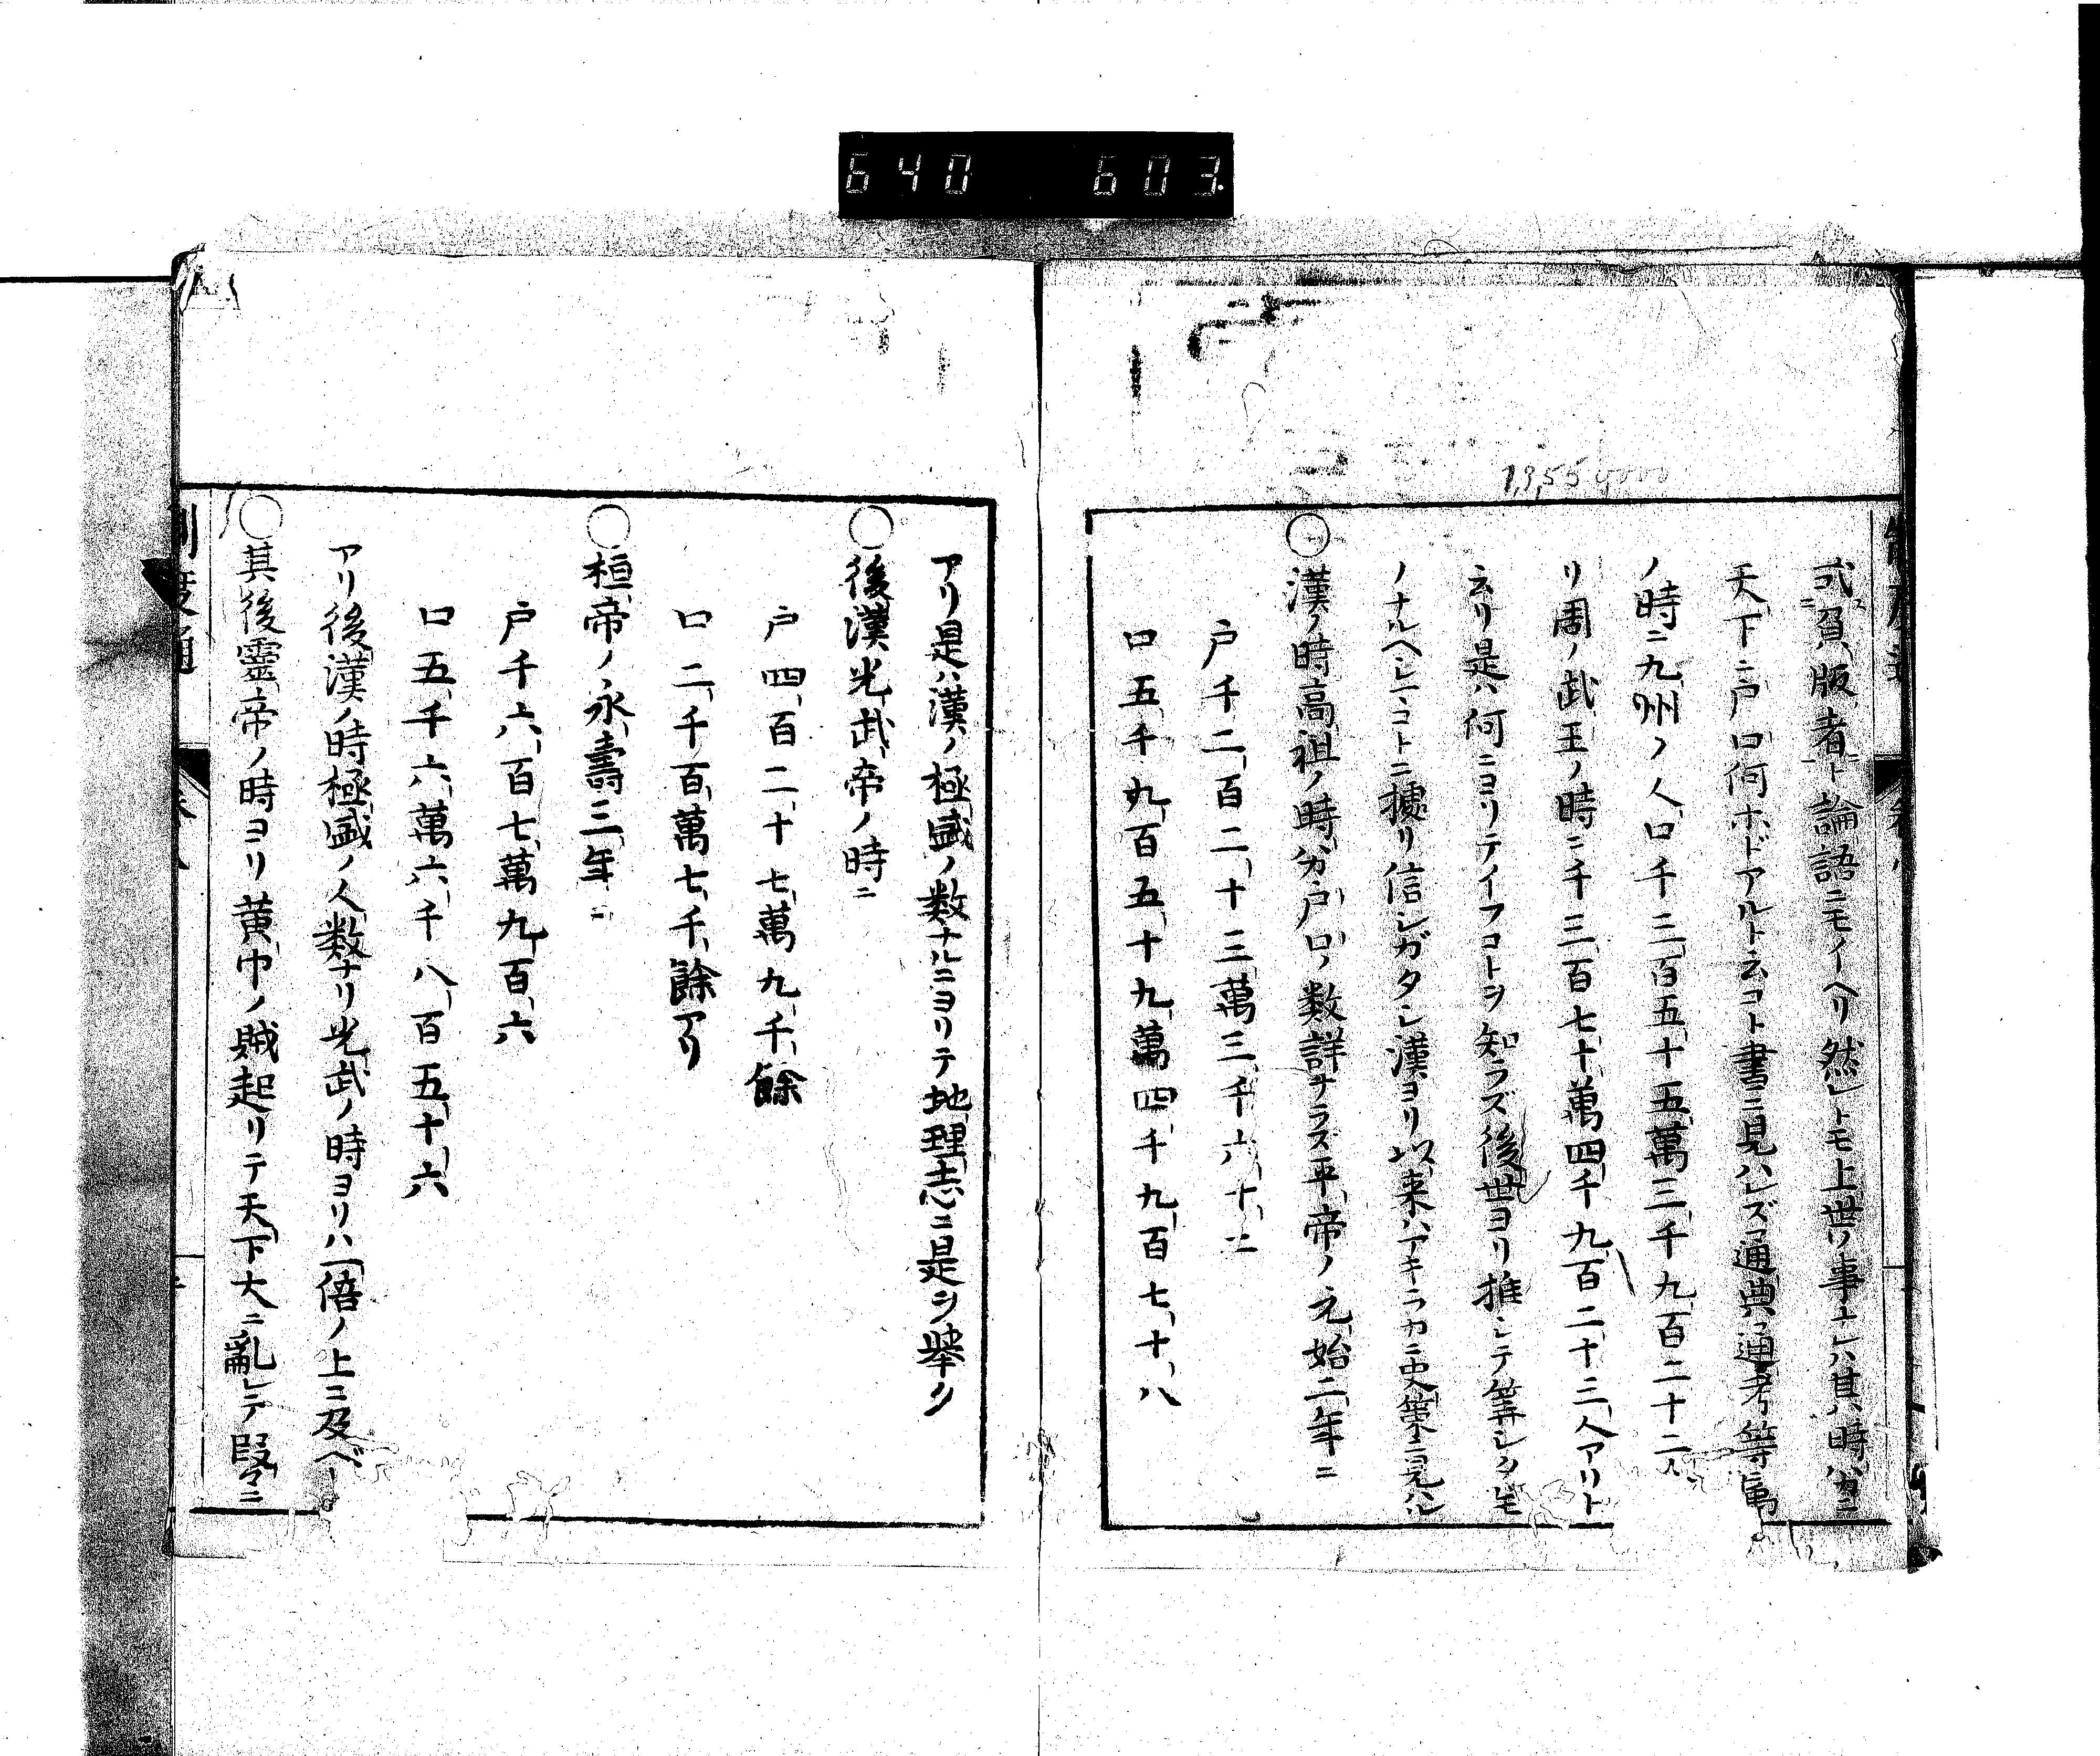 640 603.
1,9,554,000
式負版者ト論語ニモイヘリ然レトモ上世ノ事ナレハ其時分ニ
天下ニ戸口何ホドアルト云コト書ニ見ハレズ通典通考等禹
ノ時ニ九州ノ人口千三百五十五萬三千九百二十二人
リ周ノ武王ノ時ニ千三百七十萬四千九百二十三人アリト
云リ是ハ何ニヨリテイフコトヲ知ラズ後世ヨリ推シテ筭シタモ
ノナルヘシコトニ據リ信シガタシ漢ヨリ以来ハアキラカニ史策ニ見ハル
○漢ノ時高祖ノ時分戸口ノ数詳ナラズ平帝ノ元始二年ニ
戸千二百二十三萬三千六十二
口五千九百五十九萬四千九百七十八
アリ是ハ漢ノ極盛ノ数ナルニヨリテ地理志ニ是ヲ舉ク
○後漢光武帝ノ時ニ
戸四百二十七萬九千餘
口二千百萬七千餘アリ
○桓帝ノ永壽三年ニ
戸千六百七萬九百六
口五千六萬六千八百五十六
アリ後漢ノ時極盛ノ人数ナリ光武ノ時ヨリハ一倍ノ上ニ及ベ
○其後靈帝ノ時ヨリ黄巾ノ賊起リテ天下大ニ亂レテ段々ニ